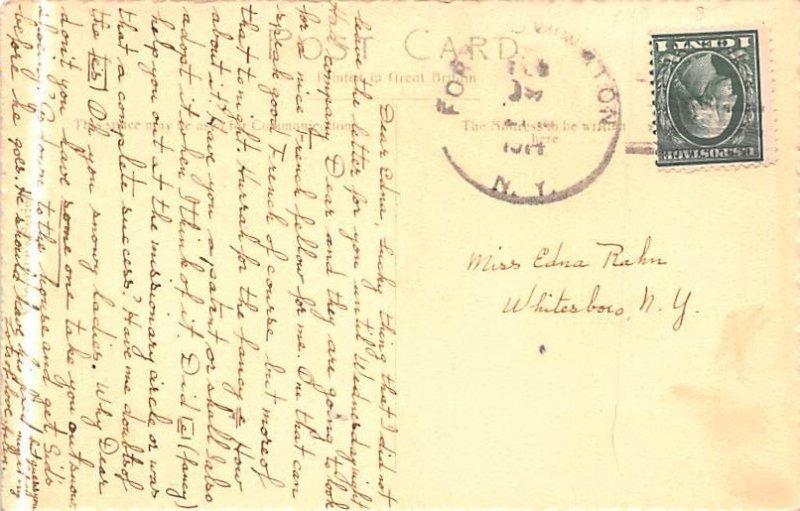 POST CARD
Printed in Great Britain
This Space may be used for Communication
The Address to be written
here
FORT COVINGTON
N.Y.
1 CENT 1
U.S.POSTAGE
Miss Edna Rahn
Whitesboro, N.Y.
Dear Edna, Lucky thing that I did not
have the letter for you until Wednesday night
Had company Dear and they are going to look
for a nice French fellow for me. One that can
speak good French of course but more of
that to-night. Hurrah for the fancy = How
about it? Have you a patent or shall I also
adopt it when I think of it. Did (fancy)
help you out at the missionary circle or was
that a complete success? Have me doubts of
the Oh you snowy ladies. Why Dear
don't you have some one take you out snow
Go down to the house and get Sid's
before he goes. He should have
Lots of love